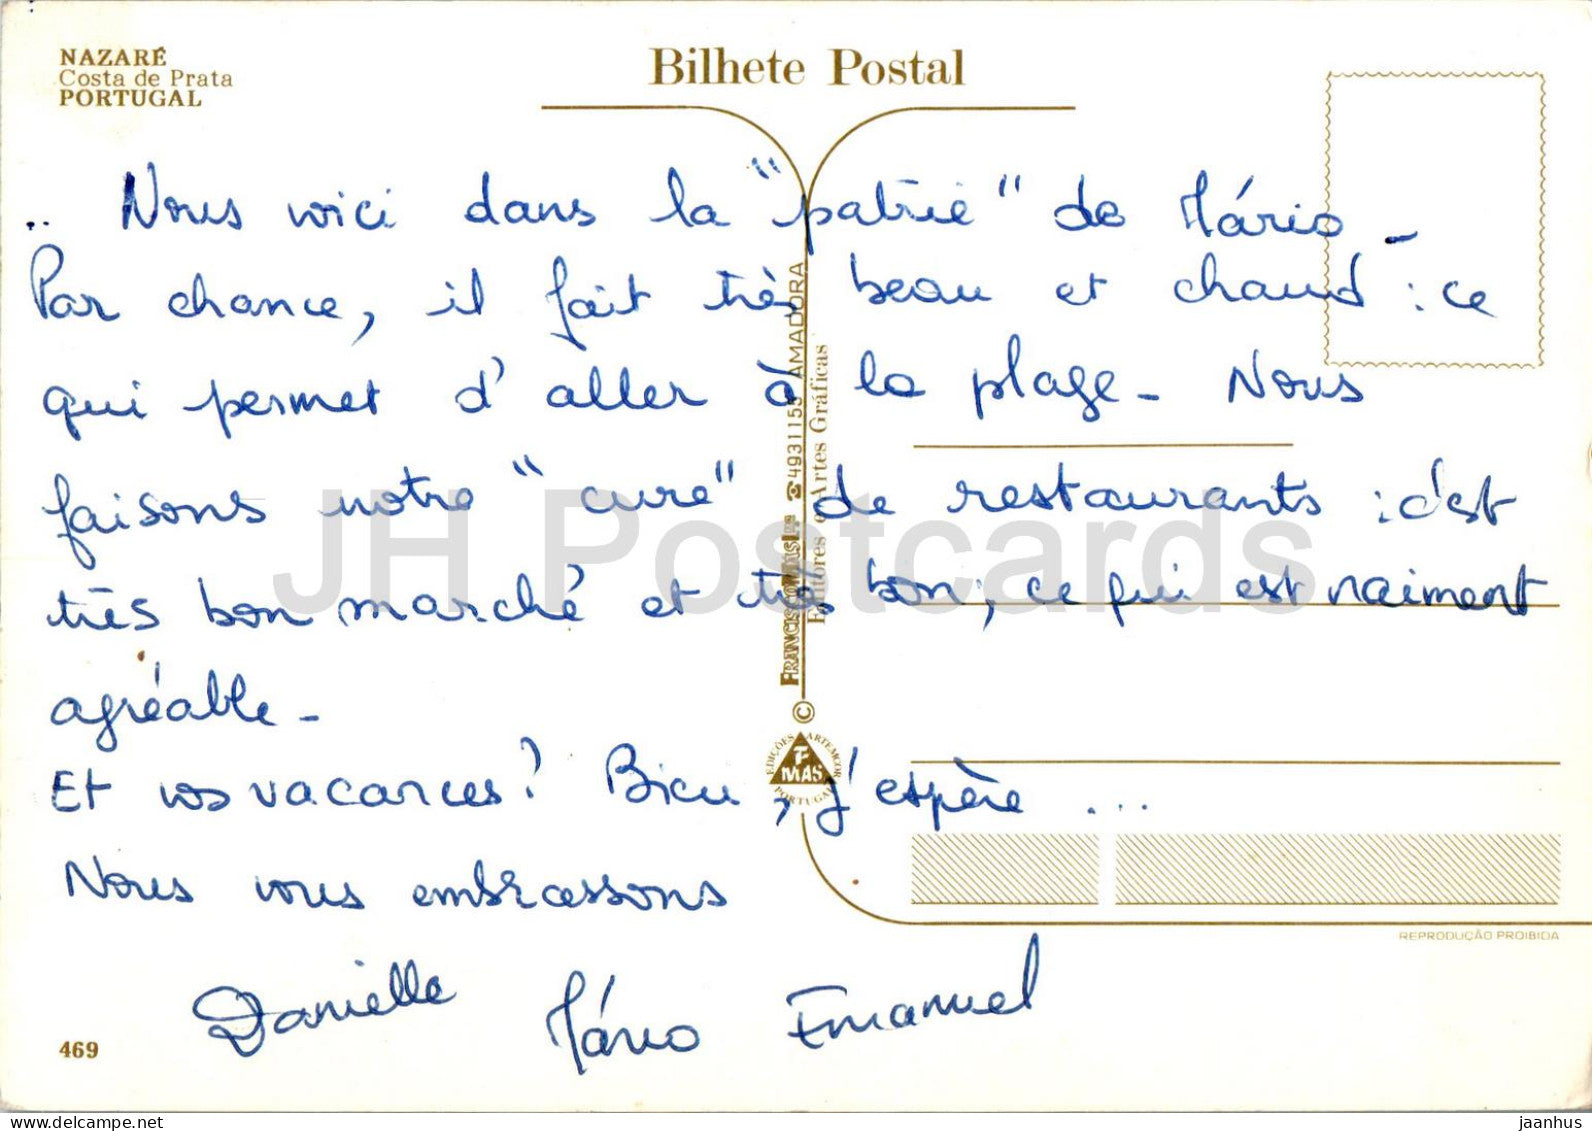 NAZARÉ
Costa de Prata
PORTUGAL
Bilhete Postal
.. Nous voici dans la "patrie" de Mário -
Par chance, il fait très beau et chaud : ce
qui permet d'aller à la plage - Nous
faisons notre "cure" de restaurants : c'est
très bon marché et très bon, ce qui est vraiment
agréable -
Et vos vacances ? Bien, j'espère ...
Nous vous embrassons
Danielle Mário Emanuel
469
4931155 AMADORA
Editores e Artes Gráficas
©
EDIÇÕES ARTEMCOR
F
MAS
PORTUGAL
REPRODUÇÃO PROIBIDA
JH Postcards
www.delcampe.net
jaanhus